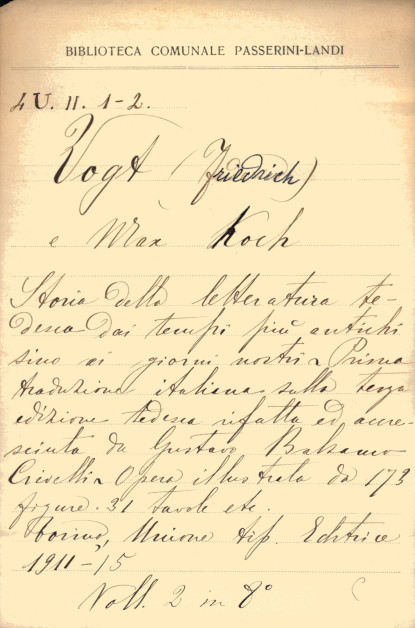 BIBLIOTECA COMUNALE PASSERINI-LANDI
4 U. II. 1-2.
Vogt (Friedrich)
e Max Koch
Storia della letteratura te-
desca dai tempi più antichi
sino ai giorni nostri - Prima
traduzione italiana sulla terza
edizione tedesca rifatta ed accre-
sciuta da Gustavo Balsamo
Crivelli - Opera illustrata da 173
figure. 31 tavole etc.
Torino, Unione tip. Editrice
1911-15
Voll. 2 in 8°